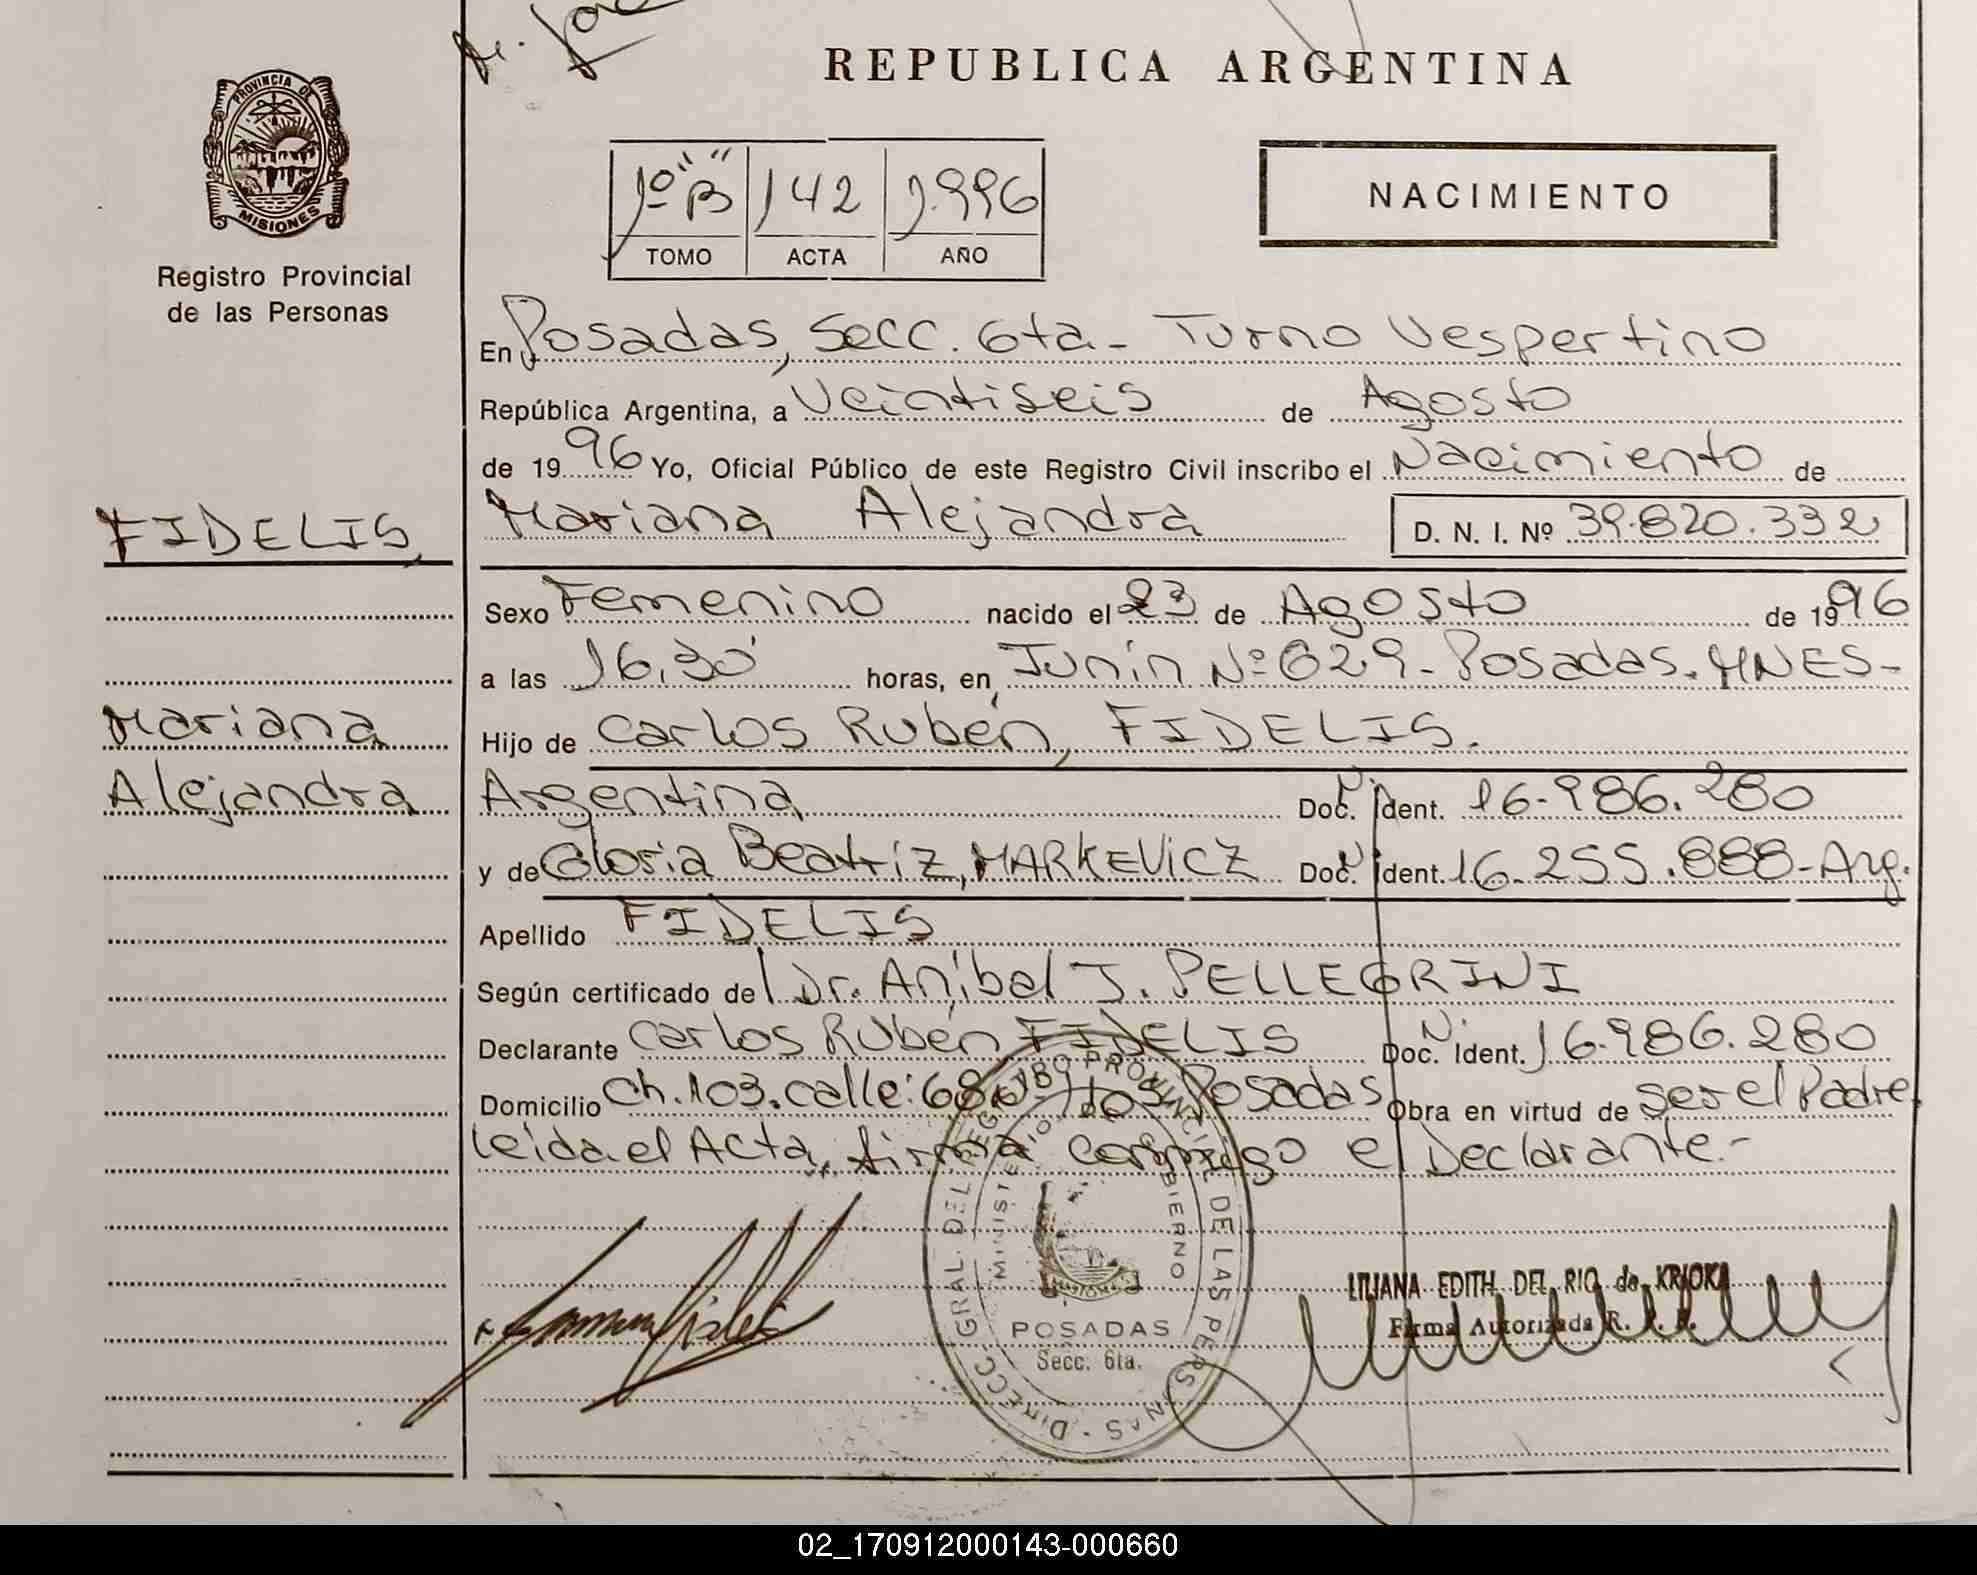 REPUBLICA ARGENTINA
PROVINCIA DE
MISIONES
Registro Provincial
de las Personas
1º "B" 142 1.996
TOMO ACTA AÑO
NACIMIENTO
En Posadas, Secc. 6ta - Turno Vespertino
República Argentina, a Veintiseis de Agosto
de 1996 Yo, Oficial Público de este Registro Civil inscribo el Nacimiento de
FIDELIS Mariana Alejandra D. N. I. Nº 39.820.332
Sexo Femenino nacido el 23 de Agosto de 1996
a las 16,30' horas, en Junín Nº 629 - Posadas. MNES-
Mariana Hijo de Carlos Rubén, FIDELIS.
Alejandra Argentina Doc. Ident. 16.986.280
y de Gloria Beatriz, MARKEVICZ Doc. Ident. 16.255.888-Arg.
Apellido FIDELIS
Según certificado del Dr. Aníbal J. PELLEGRINI
Declarante Carlos Rubén FIDELIS Doc. Ident. 16.986.280
Domicilio Ch. 103. calle: 68 Posadas Obra en virtud de ser el Padre
leída el Acta, firma conmigo el Declarante.-
DIRECC. GRAL. DEL REGISTRO PROVINCIAL DE LAS PERSONAS
MINISTERIO GOBIERNO
POSADAS
Secc. 6ta.
LILIANA EDITH DEL RIO de KRIOKA
Firma Autorizada R. P. P.
02_170912000143-000660